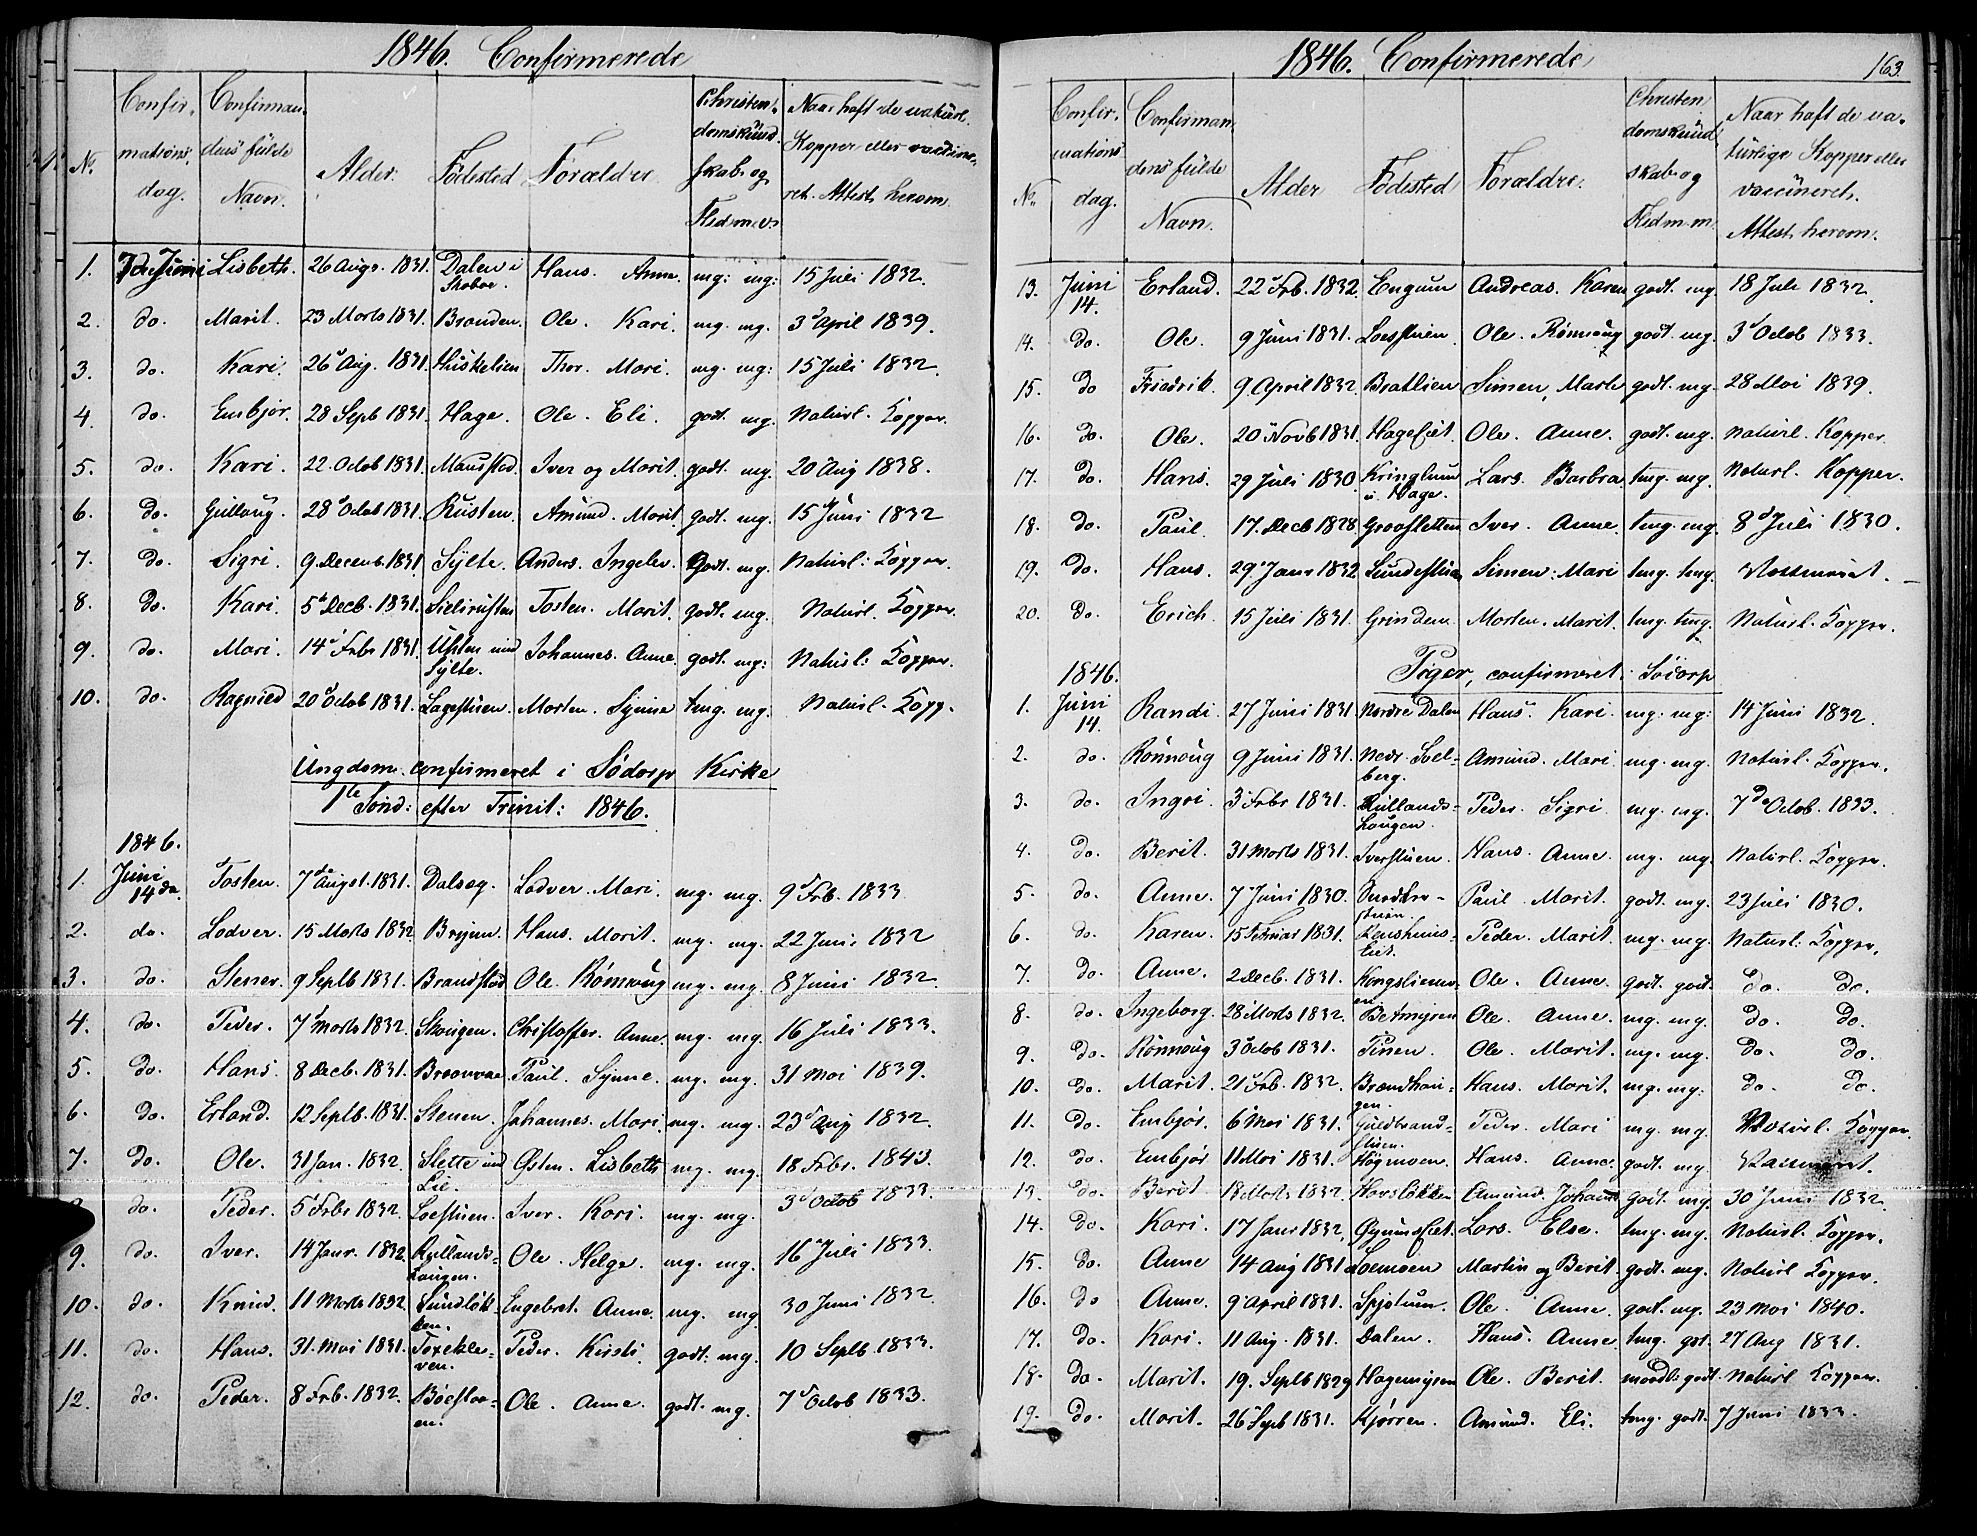 1846. Confirmerede
No. Confir- mations dag. Confirman- dens fulde Navn. Alder. Fødested Forældre Christen- domskund- skab og Flid m.v. Naar haft de naturl. Kopper eller vaccine- ret. Attest herom.
1. 7de Juni Lisbeth. 26 Aug. 1831. Dalen i Hans. Anne. mg: mg: 15 Juli 1832.
2. do. Marit. 23 Marts 1831. Branden. Ole. Kari. mg. mg. 3d April 1839.
3. do. Kari. 26 Aug. 1831. Huskelien Thor. Mari. mg. mg: 15 Juli 1832.
4. do. Embjør. 28 Septb 1831. Hage. Ole. Eli. godt. mg. Naturl. Kopper.
5. do. Kari. 22. Octob 1831. Iver og Marit. godt. mg. 20 Aug 1838.
6. do. Gullaug. 28d Octob 1831. Rusten. Amund. Marit. godt. mg. 15 Juni 1832
7. do. Sigri. 9 Decemb. 1831. Sylte. Anders. Ingeler. godt. mg. Naturl: Kopper.
8. do. Kari. 5d Decb. 1831. Tosten. Marit. godt. mg. Naturl. Kopper.
9. do. Mari. 14d Febr 1831. und Sylte. Johannes. Anne. godt. mg: Naturl: Kopper.
10. do. Ragnild 20d Octob 1831. Lagestuen. Morten. Synne tmg. mg. Naturl. Kopp.
Ungdom confirmeret i Södorp Kirke
1te Sönd: efter Trinit: 1846.
1846.
1. Juni 14de. Tosten. 7de Augst. 1831. Dalseg. Lodver. Mari. mg. mg. 9d Feb. 1833
2. do. Lodver. 15 Marts 1832 Bryun. Hans. Marit. mg. mg. 22 Juni 1832
3. do. Stener. 9 Septb 1831. Brandstad Ole. Rønnoug mg. mg. 8 Juni 1832.
4. do. Peder. 7d Marts 1832. Skougen. Christoffer. Anne. mg. mg. 16 Juli 1833.
5. do. Hans. 8 Decb. 1831. Paul. Synne. mg. mg. 31 Mai 1839.
6. do. Erland. 12 Septb. 1831. Stenen. Johannes. Mari. mg. mg. 23d Aug 1832.
7. do. Ole. 31 Jan. 1832. Slette und Lie. Østen. Lisbeth mg. mg. 18 Febr. 1843.
do. Peder. 5d Febr 1832. Loestuen. Iver. Kari. mg. mg. 3d Octob 1833.
9. do. Iver. 14 Janr. 1832. Rullands- haugen. Ole. Helge. mg. mg. 16 Juli 1833.
10. do. Knud. 11 Marts 1832. Sundløk- ken. Engebret. Anne. mg. mg 30 Juni 1832.
11. do. Hans. 31. Mai 1831. Peder. Kirsti. godt. mg. 10 Septb 1833.
12. do. Peder. 8 Feb. 1832. Ole. Anne. godt. mg. 7d Octob 1833.
1846. Confirmerede 163.
No. Confir- mations dag. Confirman- dens fulde Navn. Alder Fødested Forældre. Christen domskund skab og Flid m.m. Naar haft de na- turlige Kopper eller vaccineret. Attest herom.
13. Juni 14. Erland. 22 Feb. 1832. Engum Andreas. Karen godt. mg. 18 Juli 1832.
14. do. Ole. 9 Juni 1831. Loestuen. Ole. Rønnoug godt. mg. 3d Octob 1833.
15. do Friedrik. 9 April 1832 Bratlien Simen, Marte godt. mg. 28 Mai 1839.
16. do. Ole. 20 Novb 1831. Hageeiet. Ole. Anne. godt. mg. Naturl. Kopper.
17. do. Hans. 29 Juli 1830. Kringlum u. Hage. Lars. Barbra tmg. mg. Naturl. Kopper.
18. do. Paul. 17. Decb 1828 Iver. Anne. tmg. mg. 8d Juli 1830.
19. do. Hans. 29 Janr 1832 Sundestuen Simen: Mari tmg. tmg.
20. do. Erich. 15 Juli 1831. Grinden Morten. Marit. tmg. tmg. Naturl. Kopper.
1846. Piger, confirmeret. Södorp
1. Juni 14. Randi. 27 Juni 1831. Nordre Dalen Hans. Kari. mg. mg: 14 Juni 1832.
2. do. Rønnoug 9 Juni 1831. Nedr. Sol- berg. Amund. Mari. mg. mg. Naturl. Kopper.
3. do. Ingri. 3d Febr 1831. Rullands- haugen. Peder. Sigri. mg. mg. 7de Octob. 1833.
4. do. Berit. 31 Marts 1831. Iverstuen. Hans. Anne. mg. mg. Naturl. Kopper.
5. do. Anne. 7 Juni 1830. Paul. Marit. godt. mg. 23 Juli 1830.
6. do. Karen. 15 Februar 1831. Peder. Marit. mg. mg. Naturl. Kopper.
7. do. Anne. 2 Decb. 1831. Ole. Anne. godt. godt. do. do.
8. do. Ingeborg. 28 Marts 1832. Ole. Anne. mg. mg. do. do.
9. do. Rønnoug 3d Octob 1831. Ole. Marit. mg. mg. do. do.
10. do. Marit. 21 Feb. 1832. Brændhau- gen. Hans. Marit. mg. mg: do. do.
11. do. Embjør. 6 Mai 1831. Guldbrand- stuen. Peder. Mari mg. mg. Naturl. Kopper.
12. do. Embjør 11 Mai 1831. Høgmoen. Hans. Anne. godt. mg.
13. do. Berit 18 Marts 1832. Havsløkken Amund. godt. mg. 30 Juni 1832.
14. do. Kari. 17 Janr 1832. Lars. Else. tmg. mg. Naturl. Kopper.
15. do. Anne 14 Aug 1831 Loemoen Martin og Berit. godt. mg. Naturl Kopper.
16. do Anne. 9d April 1831. Ole. Anne. godt. mg. 23 Mai 1840.
17. do. Kari. 11 Aug. 1831. Dalen. Hans. Anne tmg. gdt. 27 Aug 1831.
18. do. Marit. 19. Septb 1829 Hagemyren Ole. Berit. maadl. godt. Naturl Kopper.
19. do. Marit. 26 Septb 1831. Kjørren. Amund. Eli. tmg. godt. 7 Juni 1833.